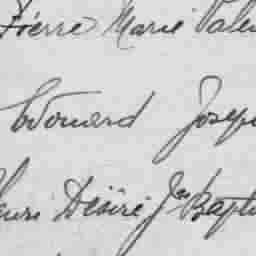 Pierre Marie Valen
Edouard Joseph
Henri Désiré Jean Bapti